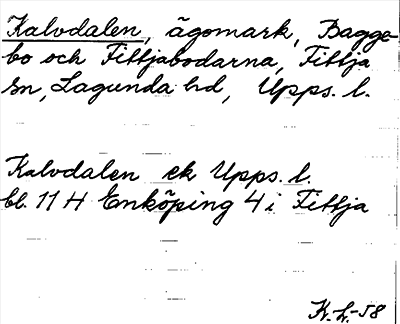 Kalvdalen, ägomark, Bagge-
bo och Fittjabodarna, Fittja
sn, Lagunda hd, Upps. l.
Kalvdalen ek Upps. l.
bl. 11 H Enköping 4 i Fittja
K.L.-58